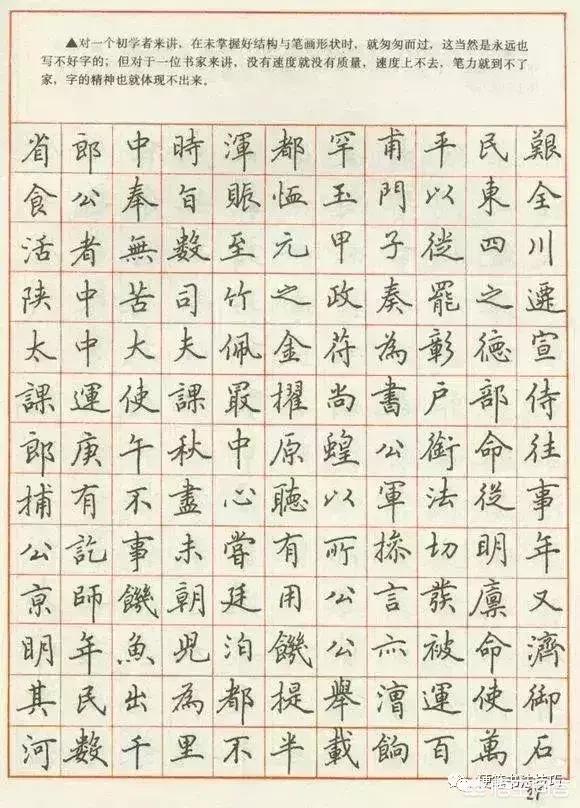 ▲对一个初学者来讲，在未掌握好结构与笔画形状时，就匆匆而过，这当然是永远也
写不好字的；但对于一位书家来讲，没有速度就没有质量，速度上不去，笔力就到不了
家，字的精神也就体现不出来。
省郎中時渾都罕甫平民艱
食公奉旨賑恤玉門以東全
活者無數至元甲子從四川
陝中苦司竹之政奏罷之遷
太中大夫佩金符為彰德宣
課運使課最擢尚書戶部侍
郎庚午秋中原蝗公銜命往
捕有不盡心聽以軍法從事
公訖事未嘗有所摻切明年
京師饑朝廷用公言發廩又
明年魚兒泊饑公亦被命濟
其民出為都提舉漕運使御
河數千里不半載餉百萬石
硬笔书法技巧
21